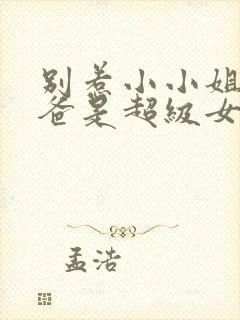 别惹小小姐
爸是超级女
孟浩